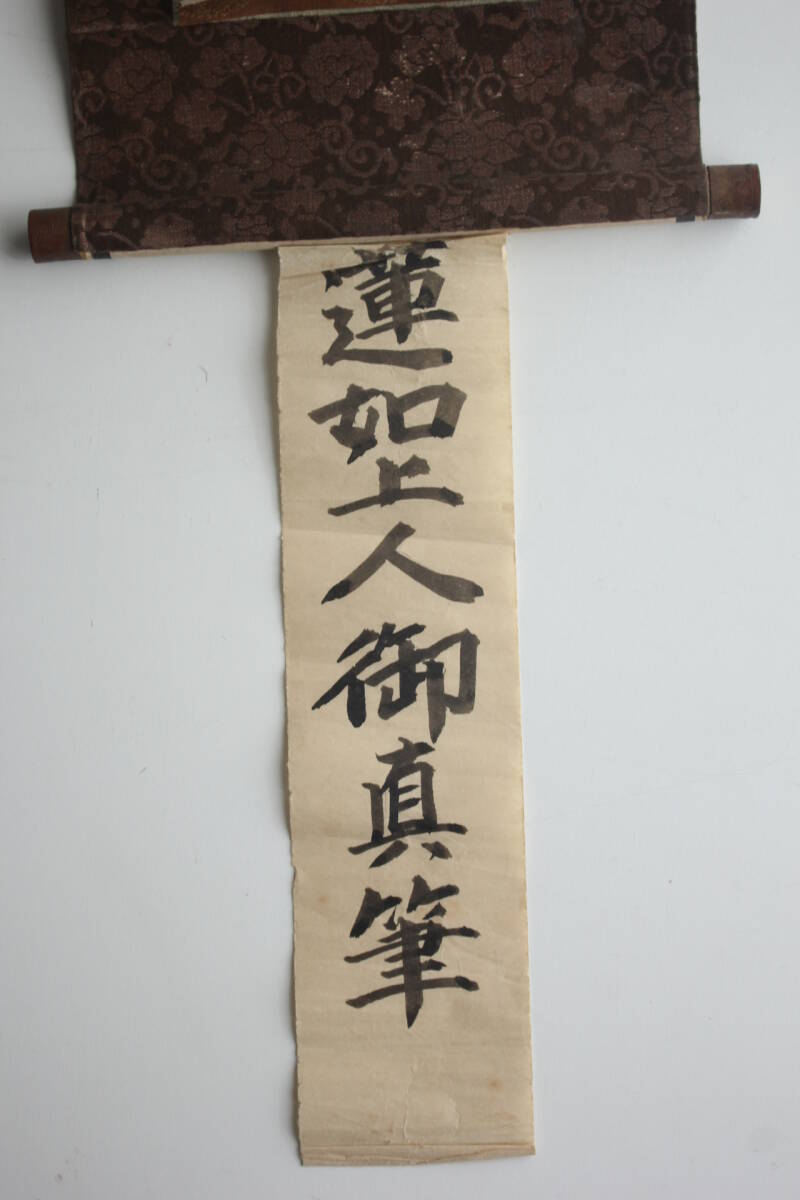 蓮如上人御真筆